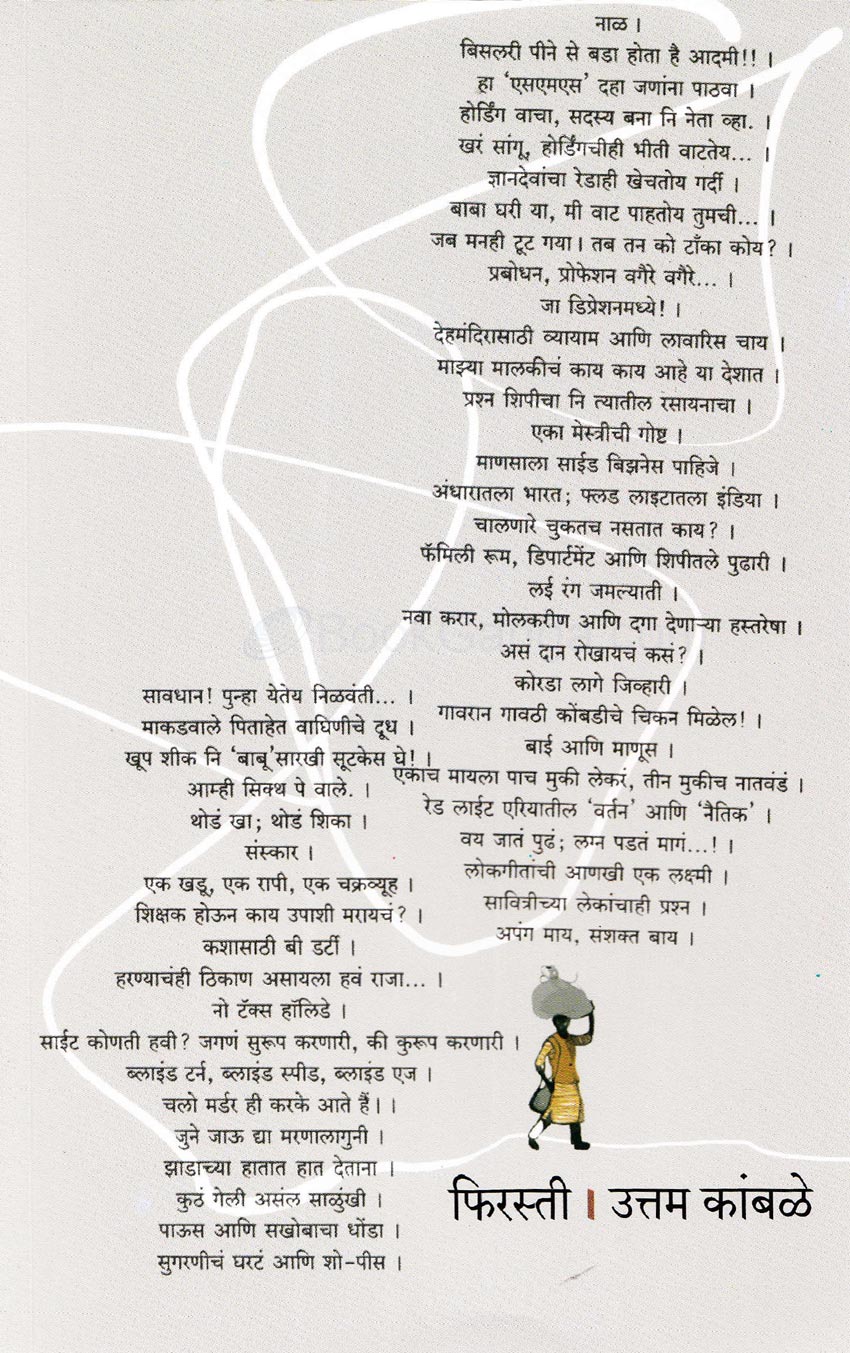 नाळ ।
बिसलरी पीने से बडा होता है आदमी!! ।
हा ‘एसएमएस’ दहा जणांना पाठवा ।
होर्डिंग वाचा, सदस्य बना नि नेता व्हा. ।
खरं सांगू, होर्डिंगचीही भीती वाटतेय... ।
ज्ञानदेवांचा रेडाही खेचतोय गर्दी ।
बाबा घरी या, मी वाट पाहतोय तुमची... ।
जब मनही टूट गया। तब तन को टाँका कोय? ।
प्रबोधन, प्रोफेशन वगैरे वगैरे... ।
जा डिप्रेशनमध्ये! ।
देहमंदिरासाठी व्यायाम आणि लावारिस चाय ।
माझ्या मालकीचं काय काय आहे या देशात ।
प्रश्न शिपीचा नि त्यातील रसायनाचा ।
एका मेस्त्रीची गोष्ट ।
माणसाला साईड बिझनेस पाहिजे ।
अंधारातला भारत; फ्लड लाइटातला इंडिया ।
चालणारे चुकतच नसतात काय? ।
फॅमिली रूम, डिपार्टमेंट आणि शिपीतले पुढारी ।
लई रंग जमल्याती ।
नवा करार, मोलकरीण आणि दगा देणाऱ्या हस्तरेषा ।
असं दान रोखायचं कसं? ।
कोरडा लागे जिव्हारी ।
गावरान गावठी कोंबडीचे चिकन मिळेल! ।
बाई आणि माणूस ।
एकाच मायला पाच मुकी लेकरं, तीन मुकीच नातवंडं ।
रेड लाईट एरियातील ‘वर्तन’ आणि ‘नैतिक’ ।
वय जातं पुढं; लग्न पडतं मागं...! ।
लोकगीतांची आणखी एक लक्ष्मी ।
सावित्रीच्या लेकांचाही प्रश्न ।
अपंग माय, संशक्त बाय ।
सावधान! पुन्हा येतेय निळवंती... ।
माकडवाले पिताहेत वाघिणीचे दूध ।
खूप शीक नि ‘बाबू’सारखी सूटकेस घे! ।
आम्ही सिक्थ पे वाले. ।
थोडं खा; थोडं शिका ।
संस्कार ।
एक खडू, एक रापी, एक चक्रव्यूह ।
शिक्षक होऊन काय उपाशी मरायचं? ।
कशासाठी बी डर्टी ।
हरण्याचंही ठिकाण असायला हवं राजा... ।
नो टॅक्स हॉलिडे ।
साईट कोणती हवी? जगणं सुरूप करणारी, की कुरूप करणारी ।
ब्लाइंड टर्न, ब्लाइंड स्पीड, ब्लाइंड एज ।
चलो मर्डर ही करके आते हैं।।
जुने जाऊ द्या मरणालागुनी ।
झाडाच्या हातात हात देताना ।
कुठं गेली असंल साळुंखी ।
पाऊस आणि सखोबाचा धोंडा ।
सुगरणीचं घरटं आणि शो-पीस ।
फिरस्ती । उत्तम कांबळे